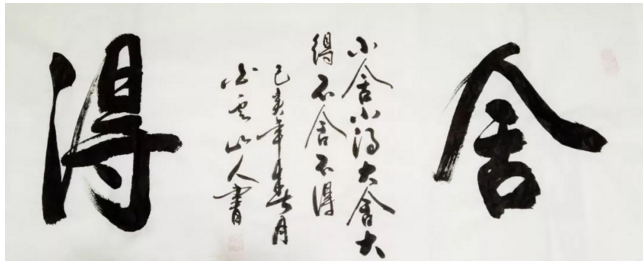 舍
小舍小得大舍大
得不舍不得
己亥年春月
白云山人書
得